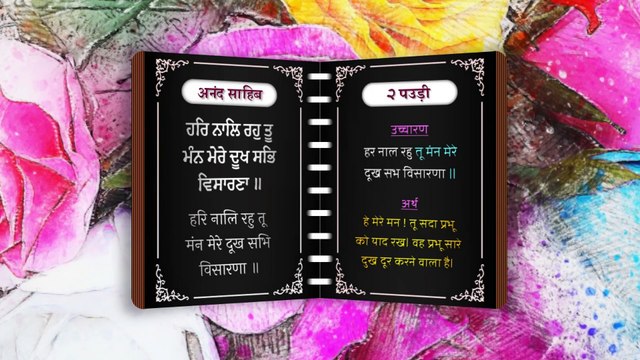 अनंद साहिब
ਹਰਿ ਨਾਲਿ ਰਹੁ ਤੂ
ਮੰਨ ਮੇਰੇ ਦੂਖ ਸਭਿ
ਵਿਸਾਰਣਾ ॥
हरि नालि रहु तू
मंन मेरे दूख सभि
विसारणा ॥
२ पउड़ी
उच्चारण
हर नाल रहु तू मंन मेरे
दूख सभ विसारणा ||
अर्थ
हे मेरे मन ! तू सदा प्रभू
को याद रख। वह प्रभू सारे
दुख दूर करने वाला है।